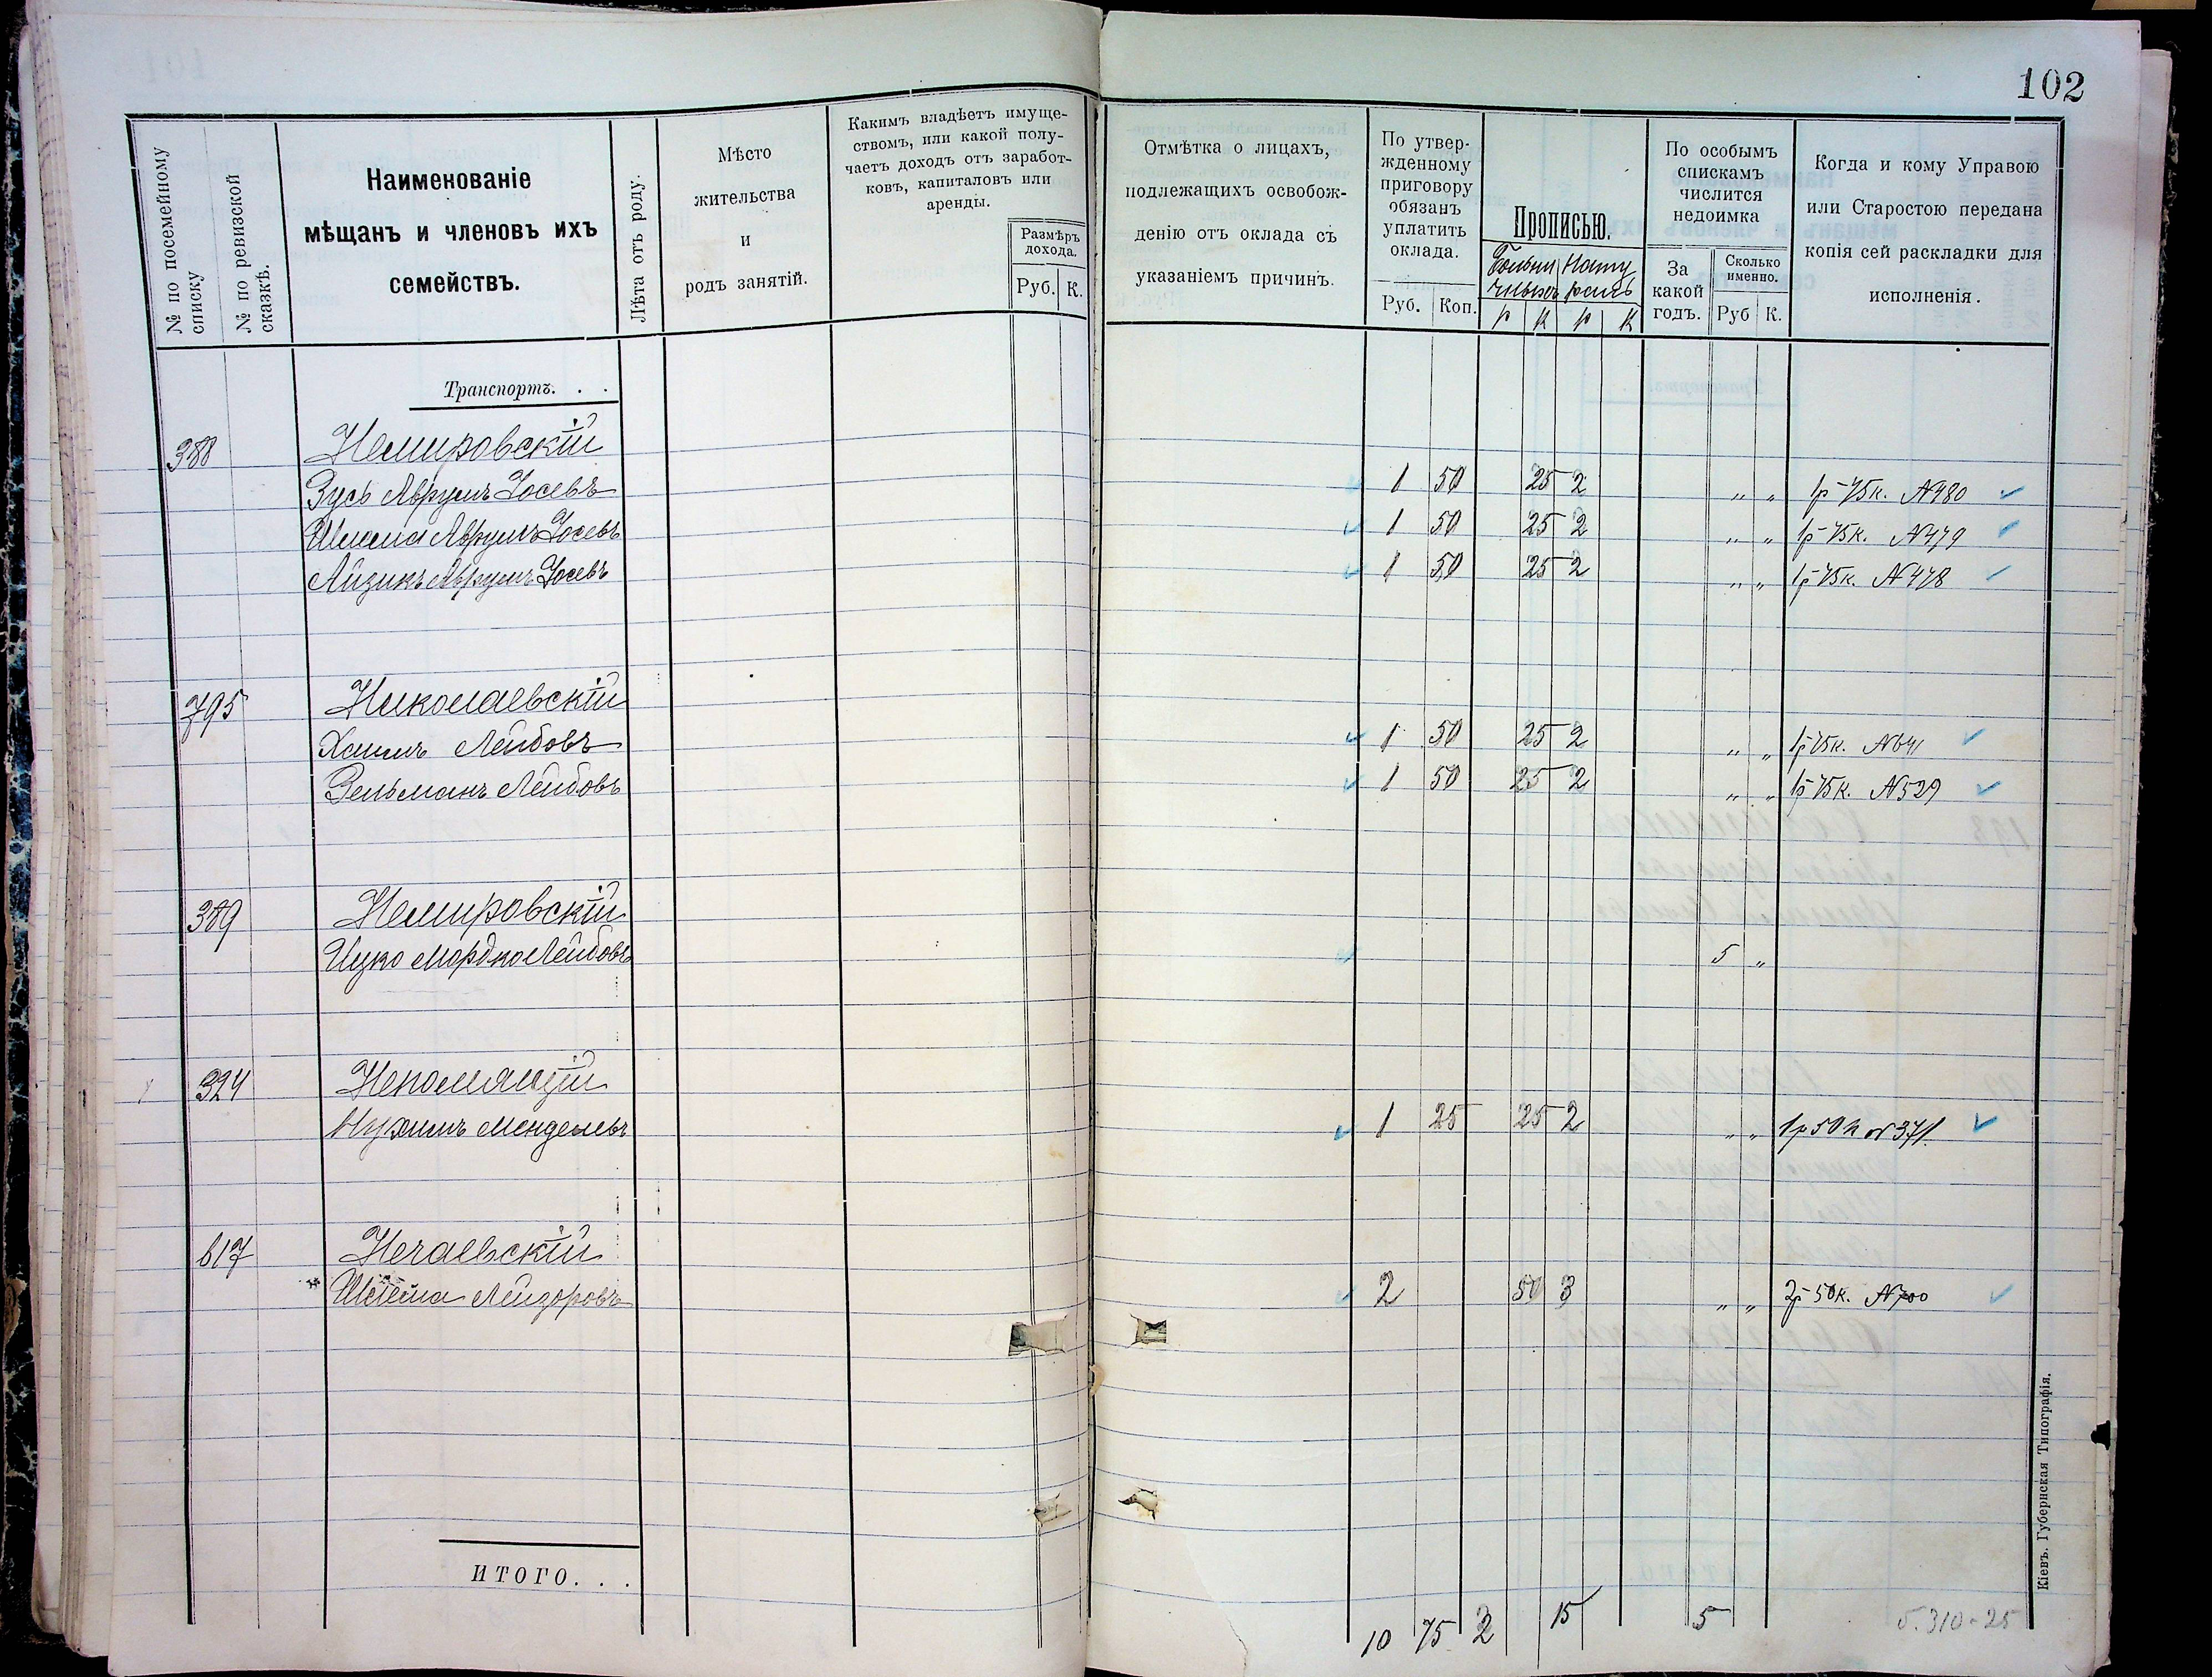 102
№ по посемейному списку
№ по ревизской сказкѣ.
Наименованіе
мѣщанъ и членовъ ихъ
семействъ.
Лѣта отъ роду.
Мѣсто
жительства
и
родъ занятій.
Какимъ владѣетъ имуще-
ствомъ, или какой полу-
чаетъ доходъ отъ заработ-
ковъ, капиталовъ или
аренды.
Размѣръ
дохода.
Руб. К.
Отмѣтка о лицахъ,
подлежащихъ освобож-
денію отъ оклада съ
указаніемъ причинъ.
По утвер-
жденному
приговору
обязанъ
уплатить
оклада.
Руб. Коп.
Прописью.
р к р к
По особымъ
спискамъ
числится
недоимка
За
какой
годъ.
Сколько
именно.
Руб К.
Когда и кому Управою
или Старостою передана
копія сей раскладки для
исполненія.
Транспортъ. . .
388 Немировскій
Зусь Аврумъ Іосевъ 1 50 25 2 " " 1р 75к. №480
Шмама Аврумъ Іосевъ 1 50 25 2 " " 1р 75к. №479
Айзикъ Аврумъ Іосевъ 1 50 25 2 " " 1р 75к. №478
795 Николаевскій
Хаимъ Лейбовъ 1 50 25 2 " " 1р 75к. №641
Зельманъ Лейбовъ 1 50 25 2 " " 1р 75к. №529
389 Немировскій
Ицко Мордко Лейбовъ 5 "
324 Непомящій
Нухимъ Менделевъ 1 25 25 2 " " 1р 50к №371.
617 Нечаевскій
Лейзоровъ 2 50 3 " " 2р 50к. №700
ИТОГО. . .
10 75 2 15 5
5.310-25
Кіевъ. Губернская Типографія.